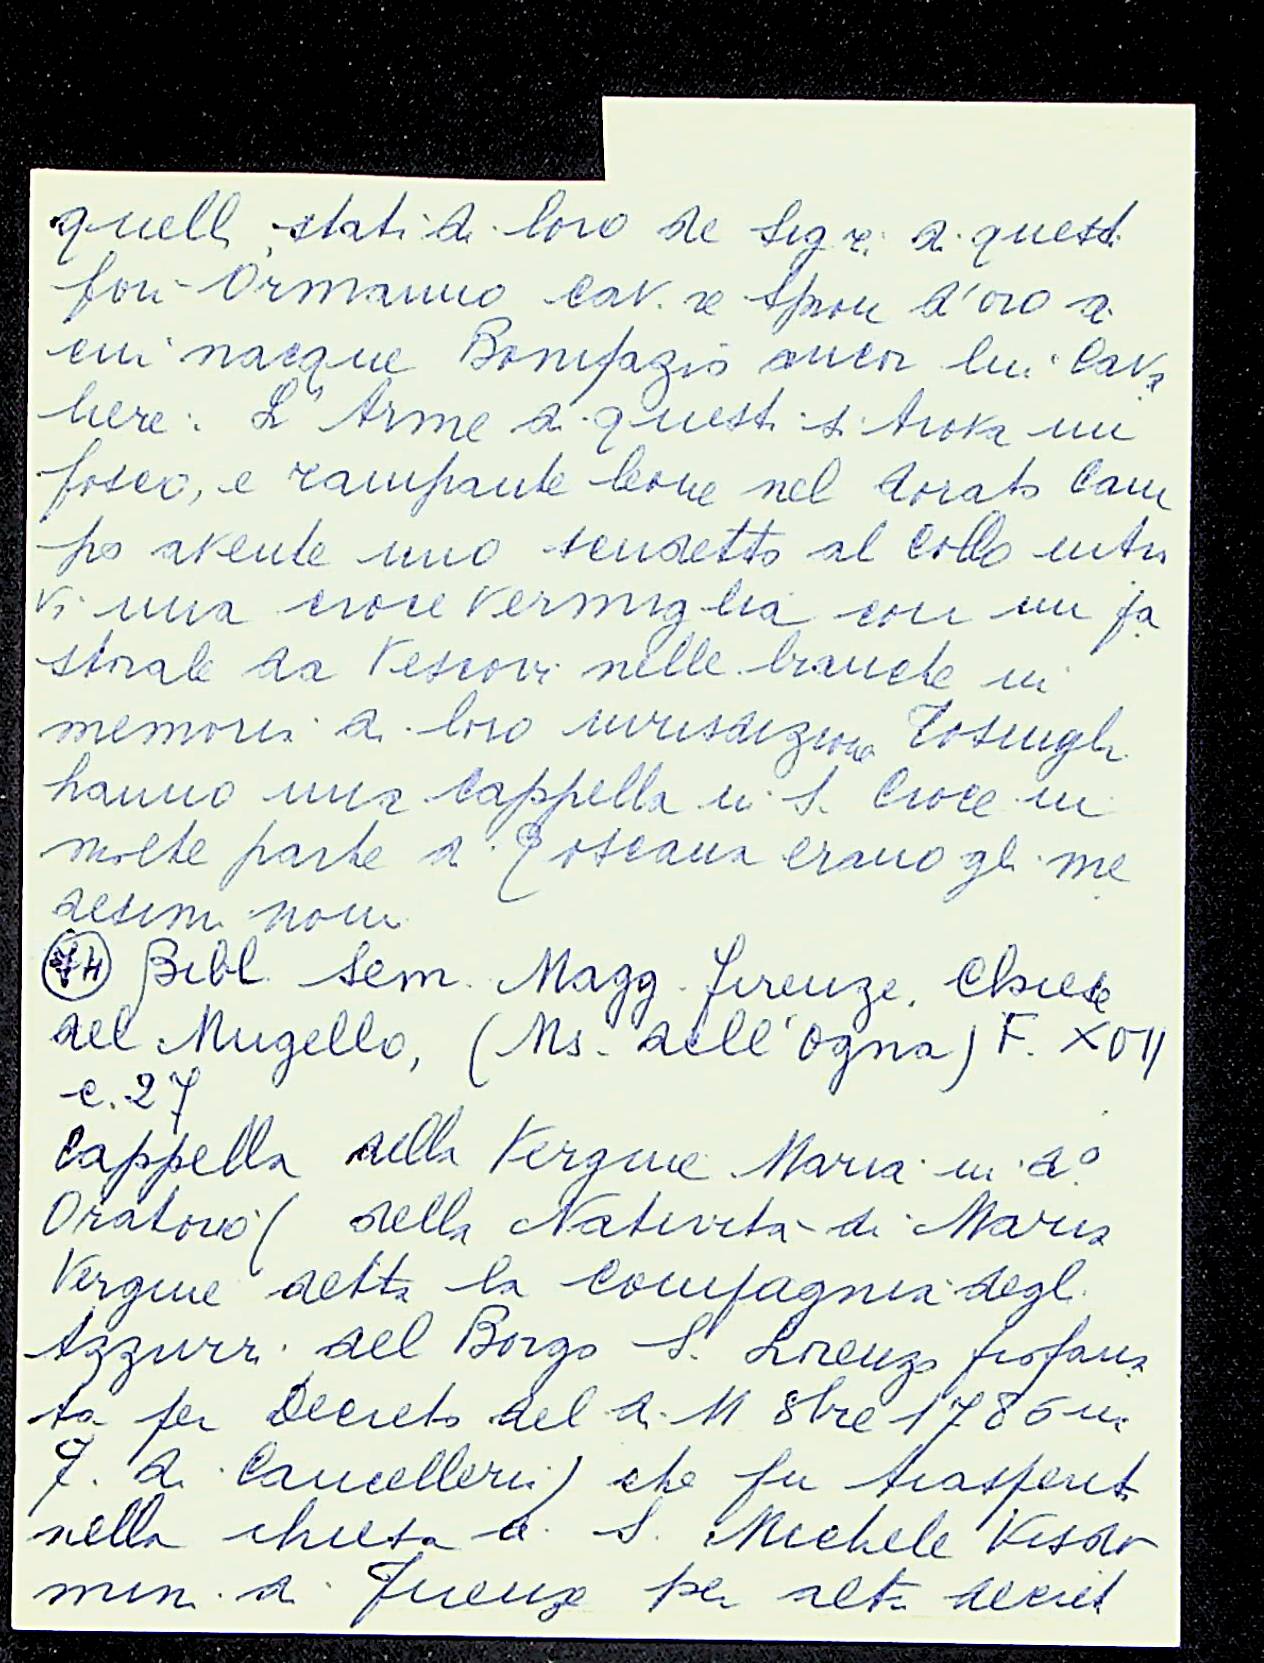 quelli stati di loro de Sig.ri di questi
fou Ormanno Cav. re spron d'oro di
cui nacque Bonifazio ancor lui Cava
liere. L'Arme di questi si trova un
fosco, e rampante leone nel dorato Cam
po avente uno scudetto al Collo entro
vi una croce vermiglia con un pa
storale da Vescovi nelle branche in
memoria di loro iurisdizione Tosinghi
hanno una cappella in S. Croce in
molte parte di Toscana erano gli me
desimi nomi
Bibl. Sem. Magg. Firenze. Chiese
del Mugello, (Ms. dell'Ogna) F. XVII
c. 27
Cappella della Vergine Maria in d.o
Oratorio (della Natività di Maria
Vergine detta la Compagnia degli
Azzurri del Borgo S. Lorenzo profana
ta per Decreto del di 11 8bre 1786 in
F. di Cancelleria) che fu trasferita
nella chiesa di S. Michele Visdo
mini di Firenze per altro decreto